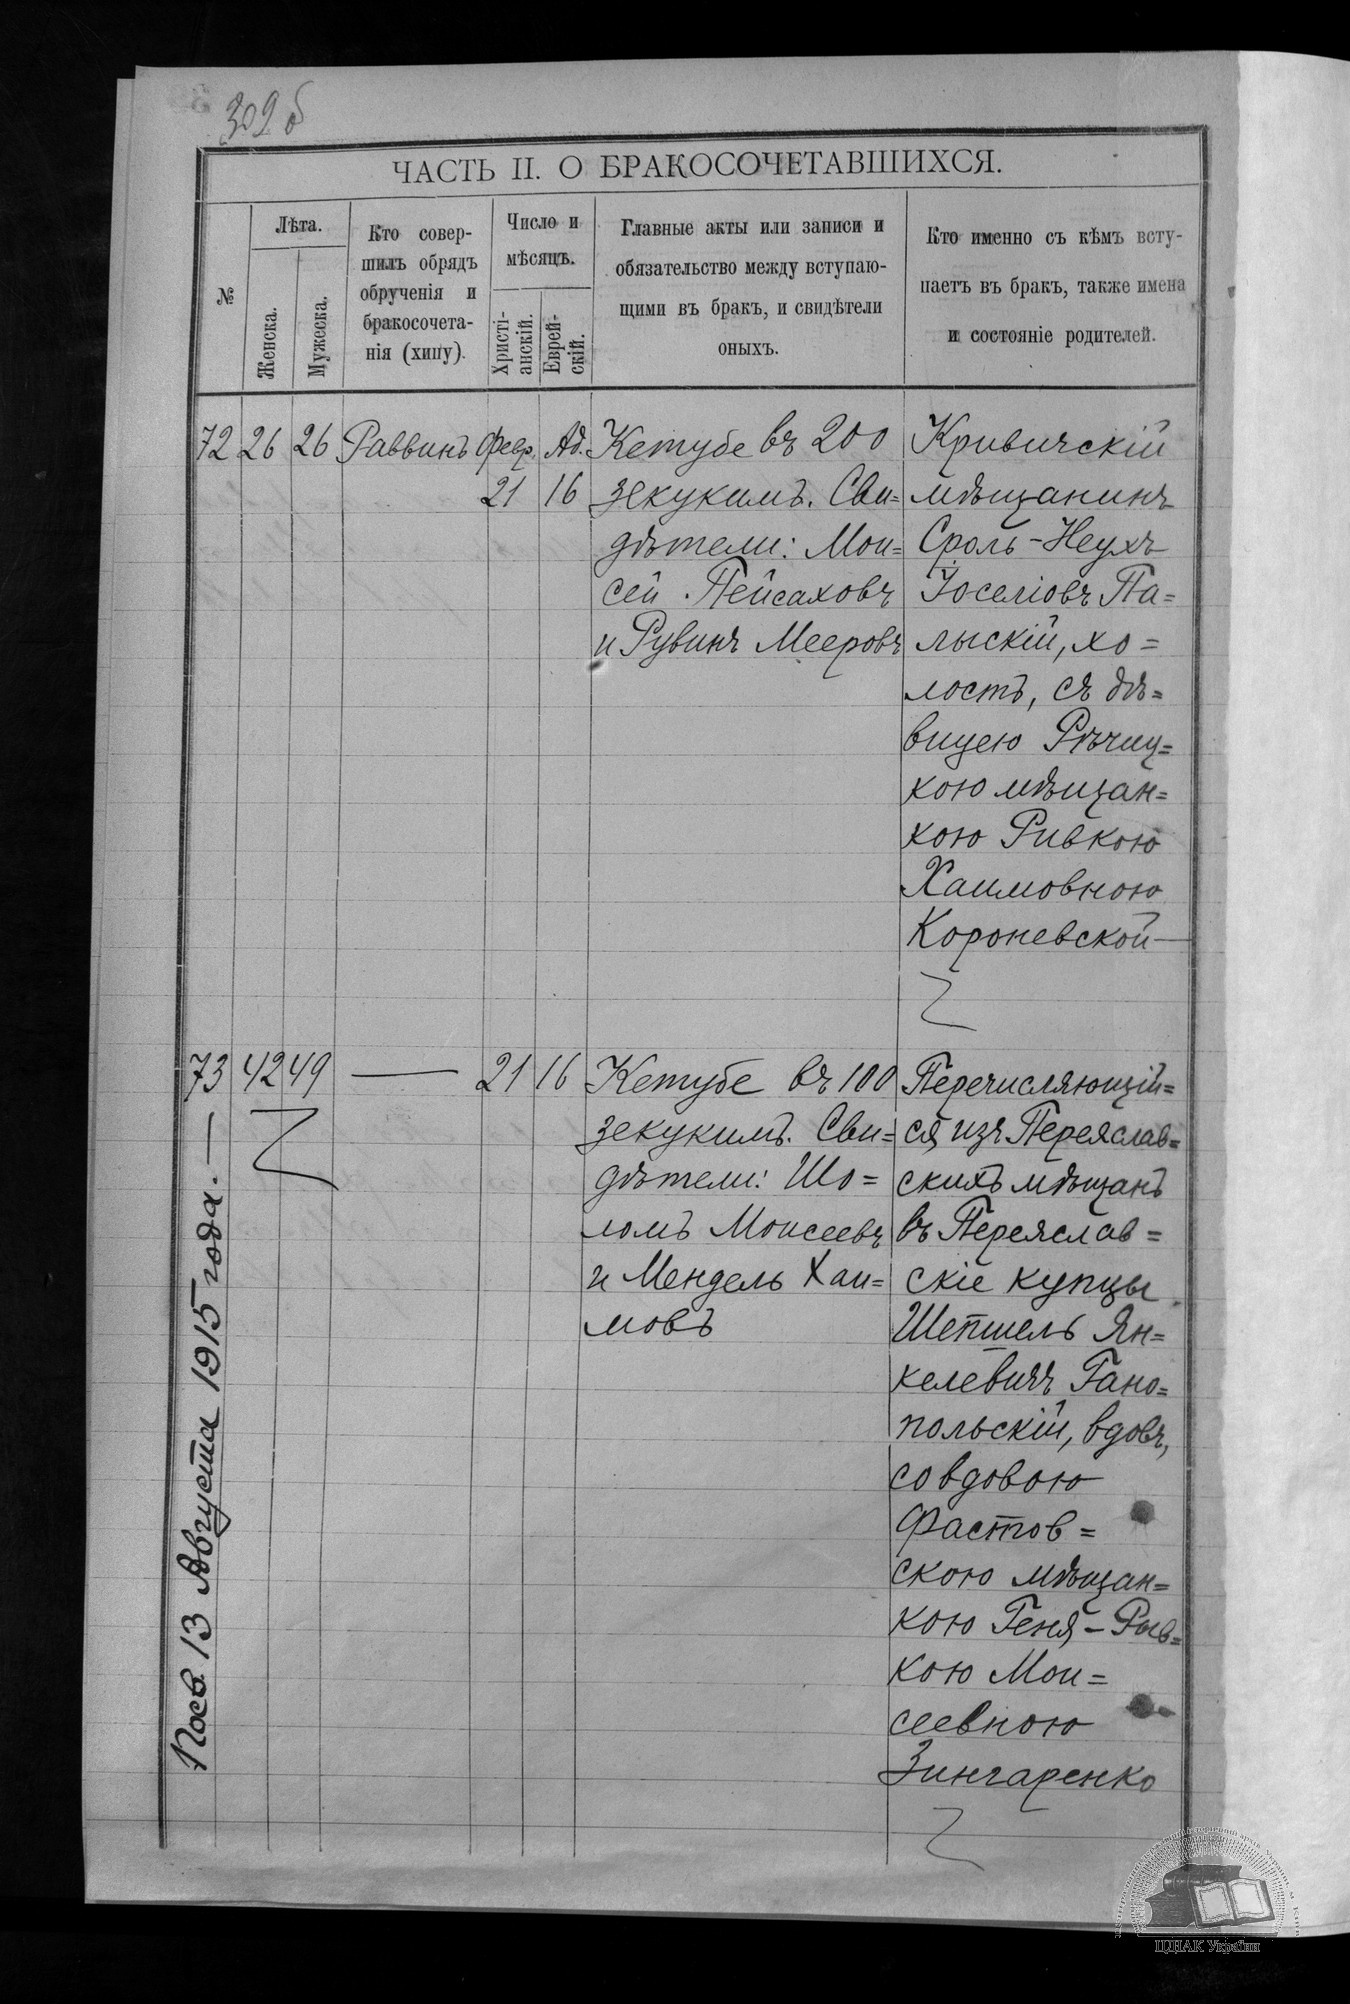 302 б
ЧАСТЬ II. О БРАКОСОЧЕТАВШИХСЯ.
№
Лѣта.
Женска.
Мужеска.
Кто совер-
шилъ обрядъ
обрученія и
бракосочета-
нія (хипу).
Число и
мѣсяцъ.
Христі-
анскій.
Еврей-
скій.
Главные акты или записи и
обязательство между вступаю-
щими въ бракъ, и свидѣтели
оныхъ.
Кто именно съ кѣмъ всту-
паетъ въ бракъ, также имена
и состояніе родителей.
72 26 26 Раввинъ Февр. Ад.
21 16
Кетубе въ 200
зекукимъ. Сви=
дѣтели: Мои=
сей Пейсаховъ
и Рувинъ Мееровъ
Кривичскій
мѣщанинъ
Сроль-Неухъ
Іоселіовъ Па=
лыскій, хо=
лостъ, съ дѣ=
вицею Рѣчиц=
кою мѣщан=
кою Ривкою
Хаимовною
Короневской
73 42 49 — 21 16
Кетубе въ 100
зекукимъ. Сви=
дѣтели: Шо=
ломъ Моисеевъ
и Мендель Хаи=
мовъ
Перечисляющій=
ся изъ Переяслав=
скихъ мѣщанъ
въ Переяслав=
скіе купцы
Шепшель Ян=
келевичъ Гано=
польскій, вдовъ,
со вдовою
Фастов=
скою мѣщан=
кою Геня-Рыв=
кою Мои=
сеевною
Зингаренко
13 Августа 1915 года. —
ЦДІАК України